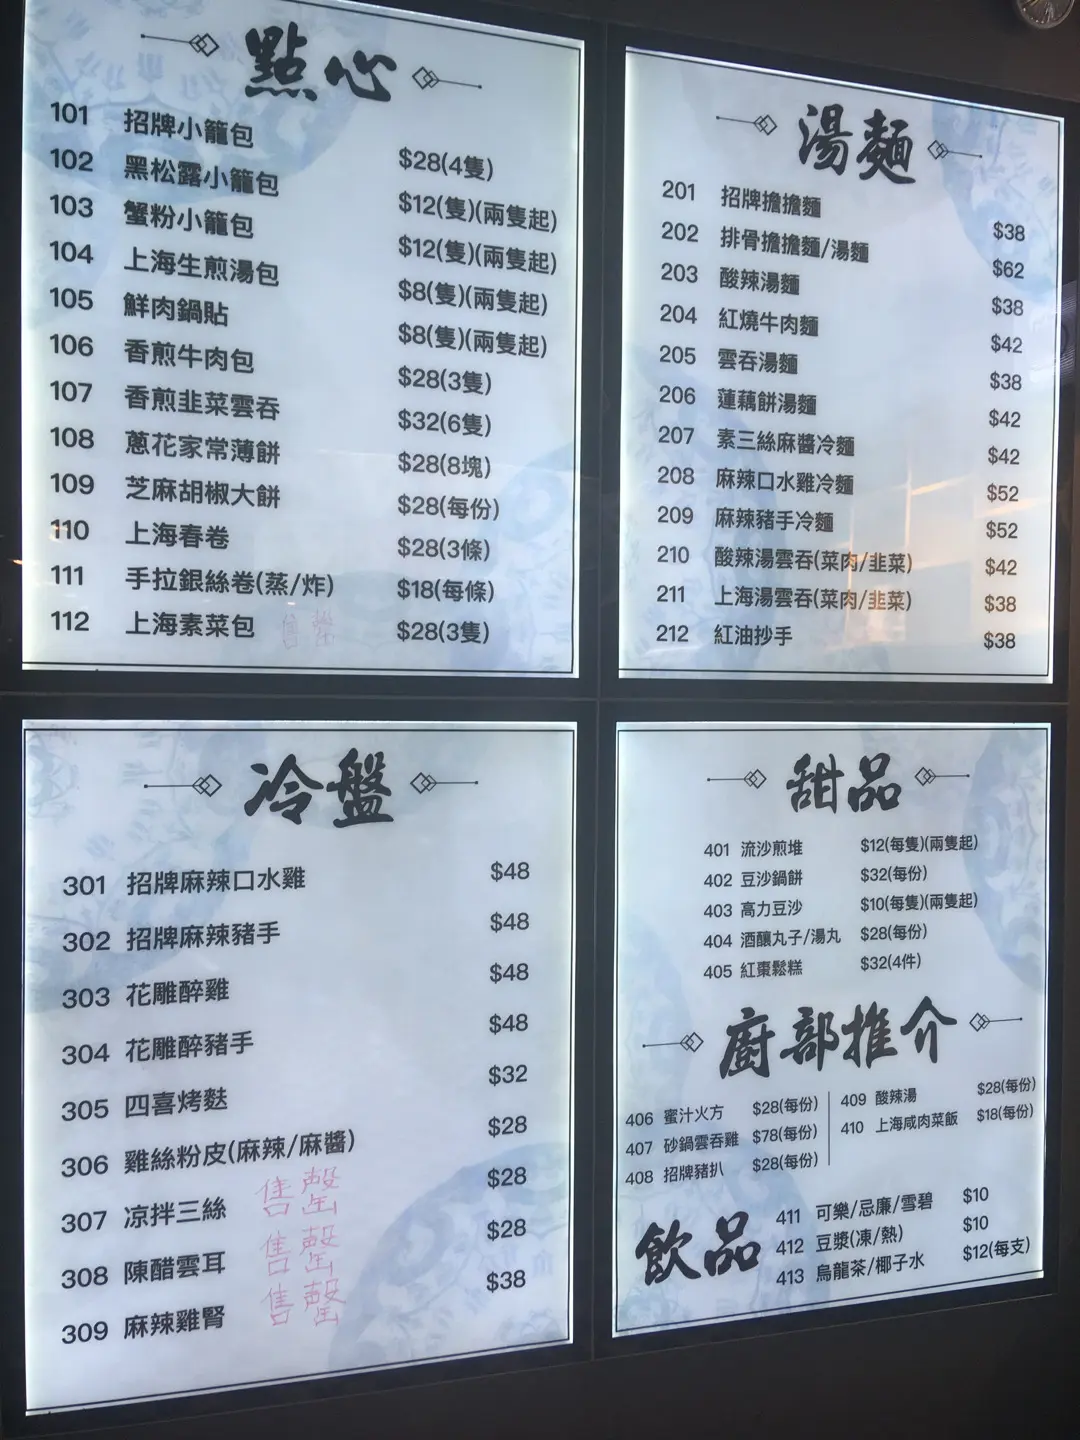 點心
101 招牌小籠包 $28(4隻)
102 黑松露小籠包 $12(隻)(兩隻起)
103 蟹粉小籠包 $12(隻)(兩隻起)
104 上海生煎湯包 $8(隻)(兩隻起)
105 鮮肉鍋貼 $8(隻)(兩隻起)
106 香煎牛肉包 $28(3隻)
107 香煎韭菜雲吞 $32(6隻)
108 蔥花家常薄餅 $28(8塊)
109 芝麻胡椒大餅 $28(每份)
110 上海春卷 $28(3條)
111 手拉銀絲卷(蒸/炸) $18(每條)
112 上海素菜包 售罄 $28(3隻)
湯麵
201 招牌擔擔麵 $38
202 排骨擔擔麵/湯麵 $62
203 酸辣湯麵 $38
204 紅燒牛肉麵 $42
205 雲吞湯麵 $38
206 蓮藕餅湯麵 $42
207 素三絲麻醬冷麵 $42
208 麻辣口水雞冷麵 $52
209 麻辣豬手冷麵 $52
210 酸辣湯雲吞(菜肉/韭菜) $42
211 上海湯雲吞(菜肉/韭菜) $38
212 紅油抄手 $38
冷盤
301 招牌麻辣口水雞 $48
302 招牌麻辣豬手 $48
303 花雕醉雞 $48
304 花雕醉豬手 $48
305 四喜烤麩 $32
306 雞絲粉皮(麻辣/麻醬) $28
307 凉拌三絲 售罄 $28
308 陳醋雲耳 售罄 $28
309 麻辣雞腎 售罄 $38
甜品
401 流沙煎堆 $12(每隻)(兩隻起)
402 豆沙鍋餅 $32(每份)
403 高力豆沙 $10(每隻)(兩隻起)
404 酒釀丸子/湯丸 $28(每份)
405 紅棗鬆糕 $32(4件)
廚部推介
406 蜜汁火方 $28(每份)
407 砂鍋雲吞雞 $78(每份)
408 招牌豬扒 $28(每份)
409 酸辣湯 $28(每份)
410 上海咸肉菜飯 $18(每份)
飲品
411 可樂/忌廉/雪碧 $10
412 豆漿(凍/熱) $10
413 烏龍茶/椰子水 $12(每支)